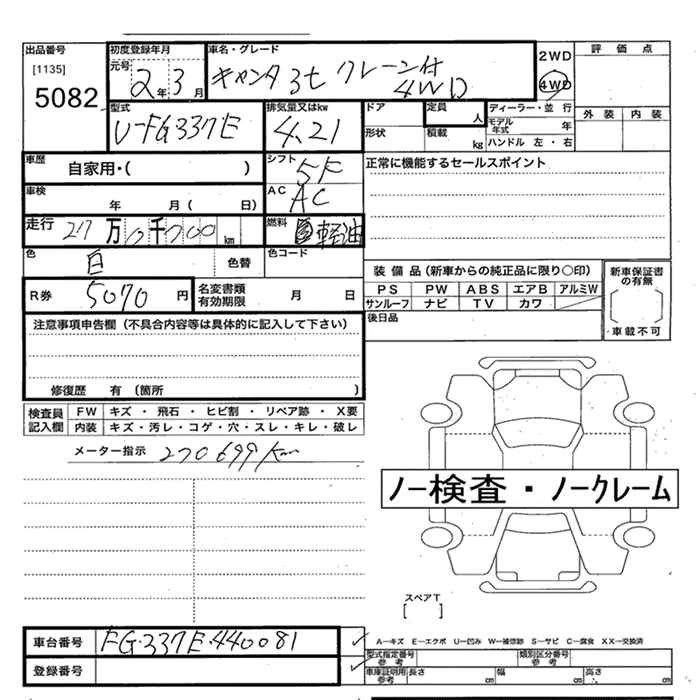 出品番号
[1135]
5082
初度登録年月
元号 2年 3月
車名・グレード
キャンタ 3t クレーン付
4WD
2WD
4WD
評価点
外装 内装
型式
U-FG337E
排気量又はkw
4.21
ドア
形状
定員
人
積載
kg
ディーラー・並行
モデル年式 年
ハンドル 左・右
車歴
自家用・( )
シフト
5F
正常に機能するセールスポイント
車検
年 月( 日)
AC
AC
走行
27万0千700km
燃料
軽油
色
白
色替
色コード
装備品(新車からの純正品に限り○印)
PS PW ABS エアB アルミW
サンルーフ ナビ TV カワ
新車保証書の有無
車載不可
R券 5070円
名変書類有効期限 月 日
後日品
注意事項申告欄(不具合内容等は具体的に記入して下さい)
修復歴 有(箇所 )
検査員記入欄
FW キズ・飛石・ヒビ割・リペア跡・X要
内装 キズ・汚レ・コゲ・穴・スレ・キレ・破レ
メーター指示 270699Km
ノー検査・ノークレーム
スペアT
[ ]
車台番号 FG・337E・440081
登録番号
A―キズ E―エクボ U―凹み W―補修跡 S―サビ C―腐食 XX―交換済
型式指定番号 参考
類別区分番号 参考
車庫証明用 参考 長さ cm 幅 cm 高さ cm